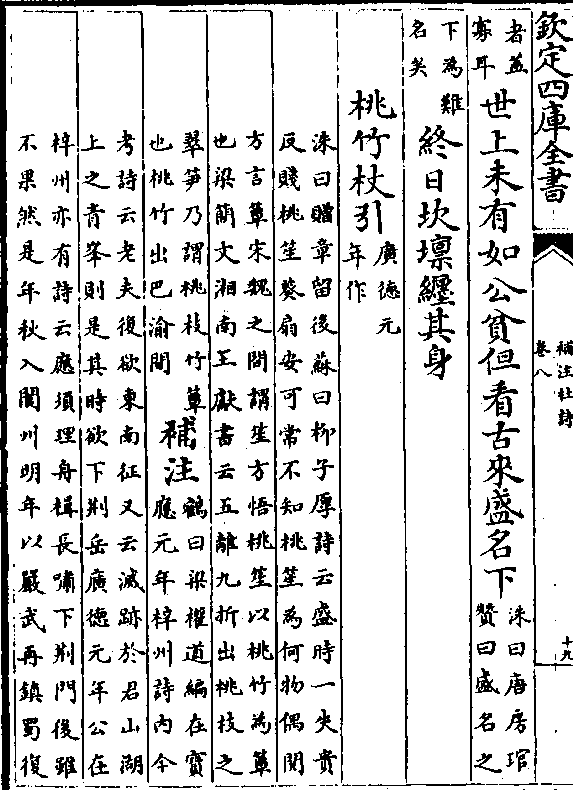 欽定四庫全書
補注杜詩
卷八
十九
者蓋
寡耳
世上未有如公貧但看古來盛名下
洙曰唐房琯
贊曰盛名之
下為難
名矣
終日坎壈纏其身
桃竹杖引
廣德元
年作
洙曰贈章留後蘇曰柳子厚詩云盛時一失貴
反賤桃笙葵扇安可常不知桃笙為何物偶閱
方言簟宋魏之間謂笙方悟桃笙以桃竹為簟
也梁簡文湘南王獻書云五離九折出桃枝之
翠笋乃謂桃枝竹簟
也桃竹出巴渝間
補注
鶴曰梁權道編在寳
應元年梓州詩内今
考詩云老夫復欲東南征又云滅跡於君山湖
上之青峯則是其時欲下荆岳廣德元年公在
梓州亦有詩云應須理舟楫長嘯下荆門後雖
不果然是年秋入閬州明年以嚴武再鎮蜀復